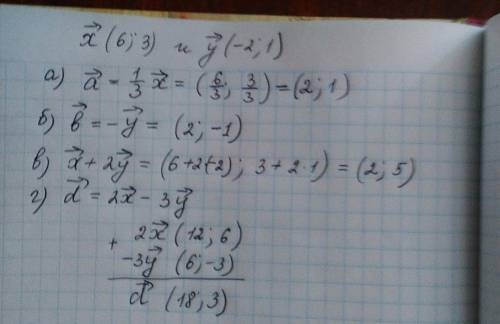 x⃗ (6; 3) и y⃗ (-2; 1)
а) a⃗ = 1/3 x⃗ = (6/3; 3/3) = (2; 1)
б) b⃗ = -y⃗ = (2; -1)
в) x⃗ + 2y⃗ = (6+2(-2); 3+2·1) = (2; 5)
г) d⃗ = 2x⃗ - 3y⃗
+ 2x⃗ (12; 6)
-3y⃗ (6; -3)
d⃗ (18; 3)